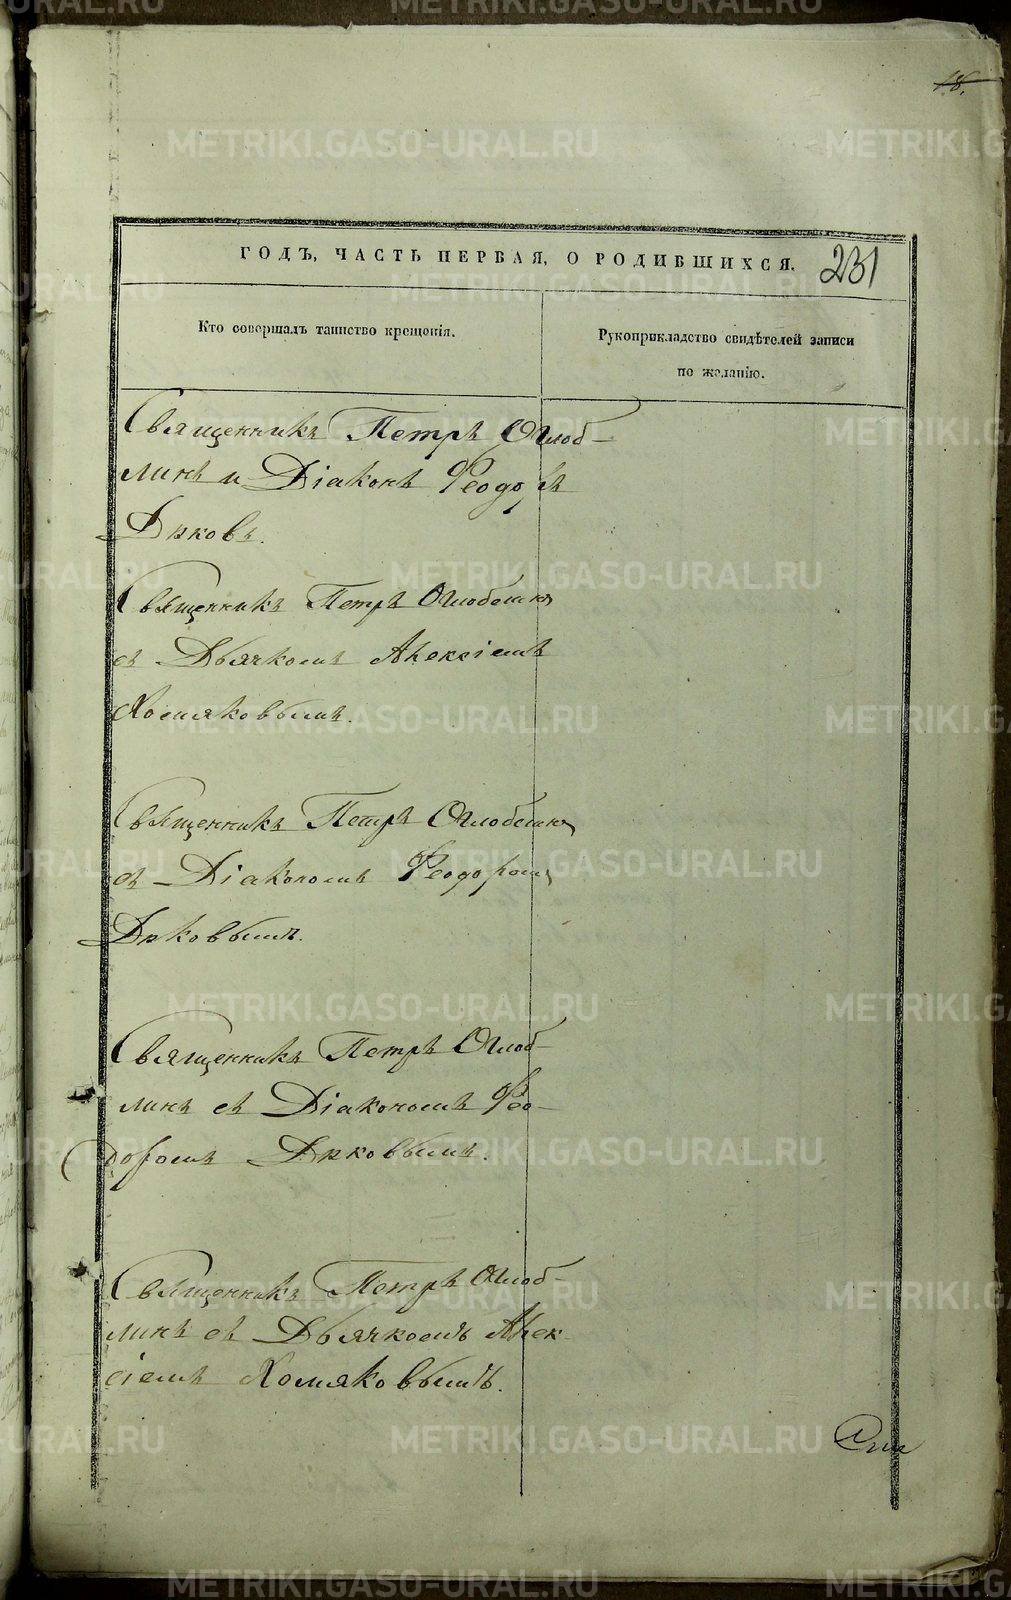 18.
ГОДЪ, ЧАСТЬ ПЕРВАЯ, О РОДИВШИХСЯ.
231
Кто совершалъ таинство крещенія.
Рукоприкладство свидѣтелей записи
по желанію.
Священникъ Петръ Оглоб-
линъ и Діаконъ Ѳеодоръ
Священникъ Петръ Оглоблинъ
съ Дьячкомъ Алексіемъ
Хомяковымъ.
Священникъ Петръ Оглоблинъ
съ Діакономъ Ѳеодоромъ
Священникъ Петръ Оглоб-
линъ съ Діакономъ Ѳео-
доромъ
Священникъ Петръ Оглоб-
линъ съ Дьячкомъ Алек-
сіемъ Хомяковымъ.
METRIKI.GASO-URAL.RU